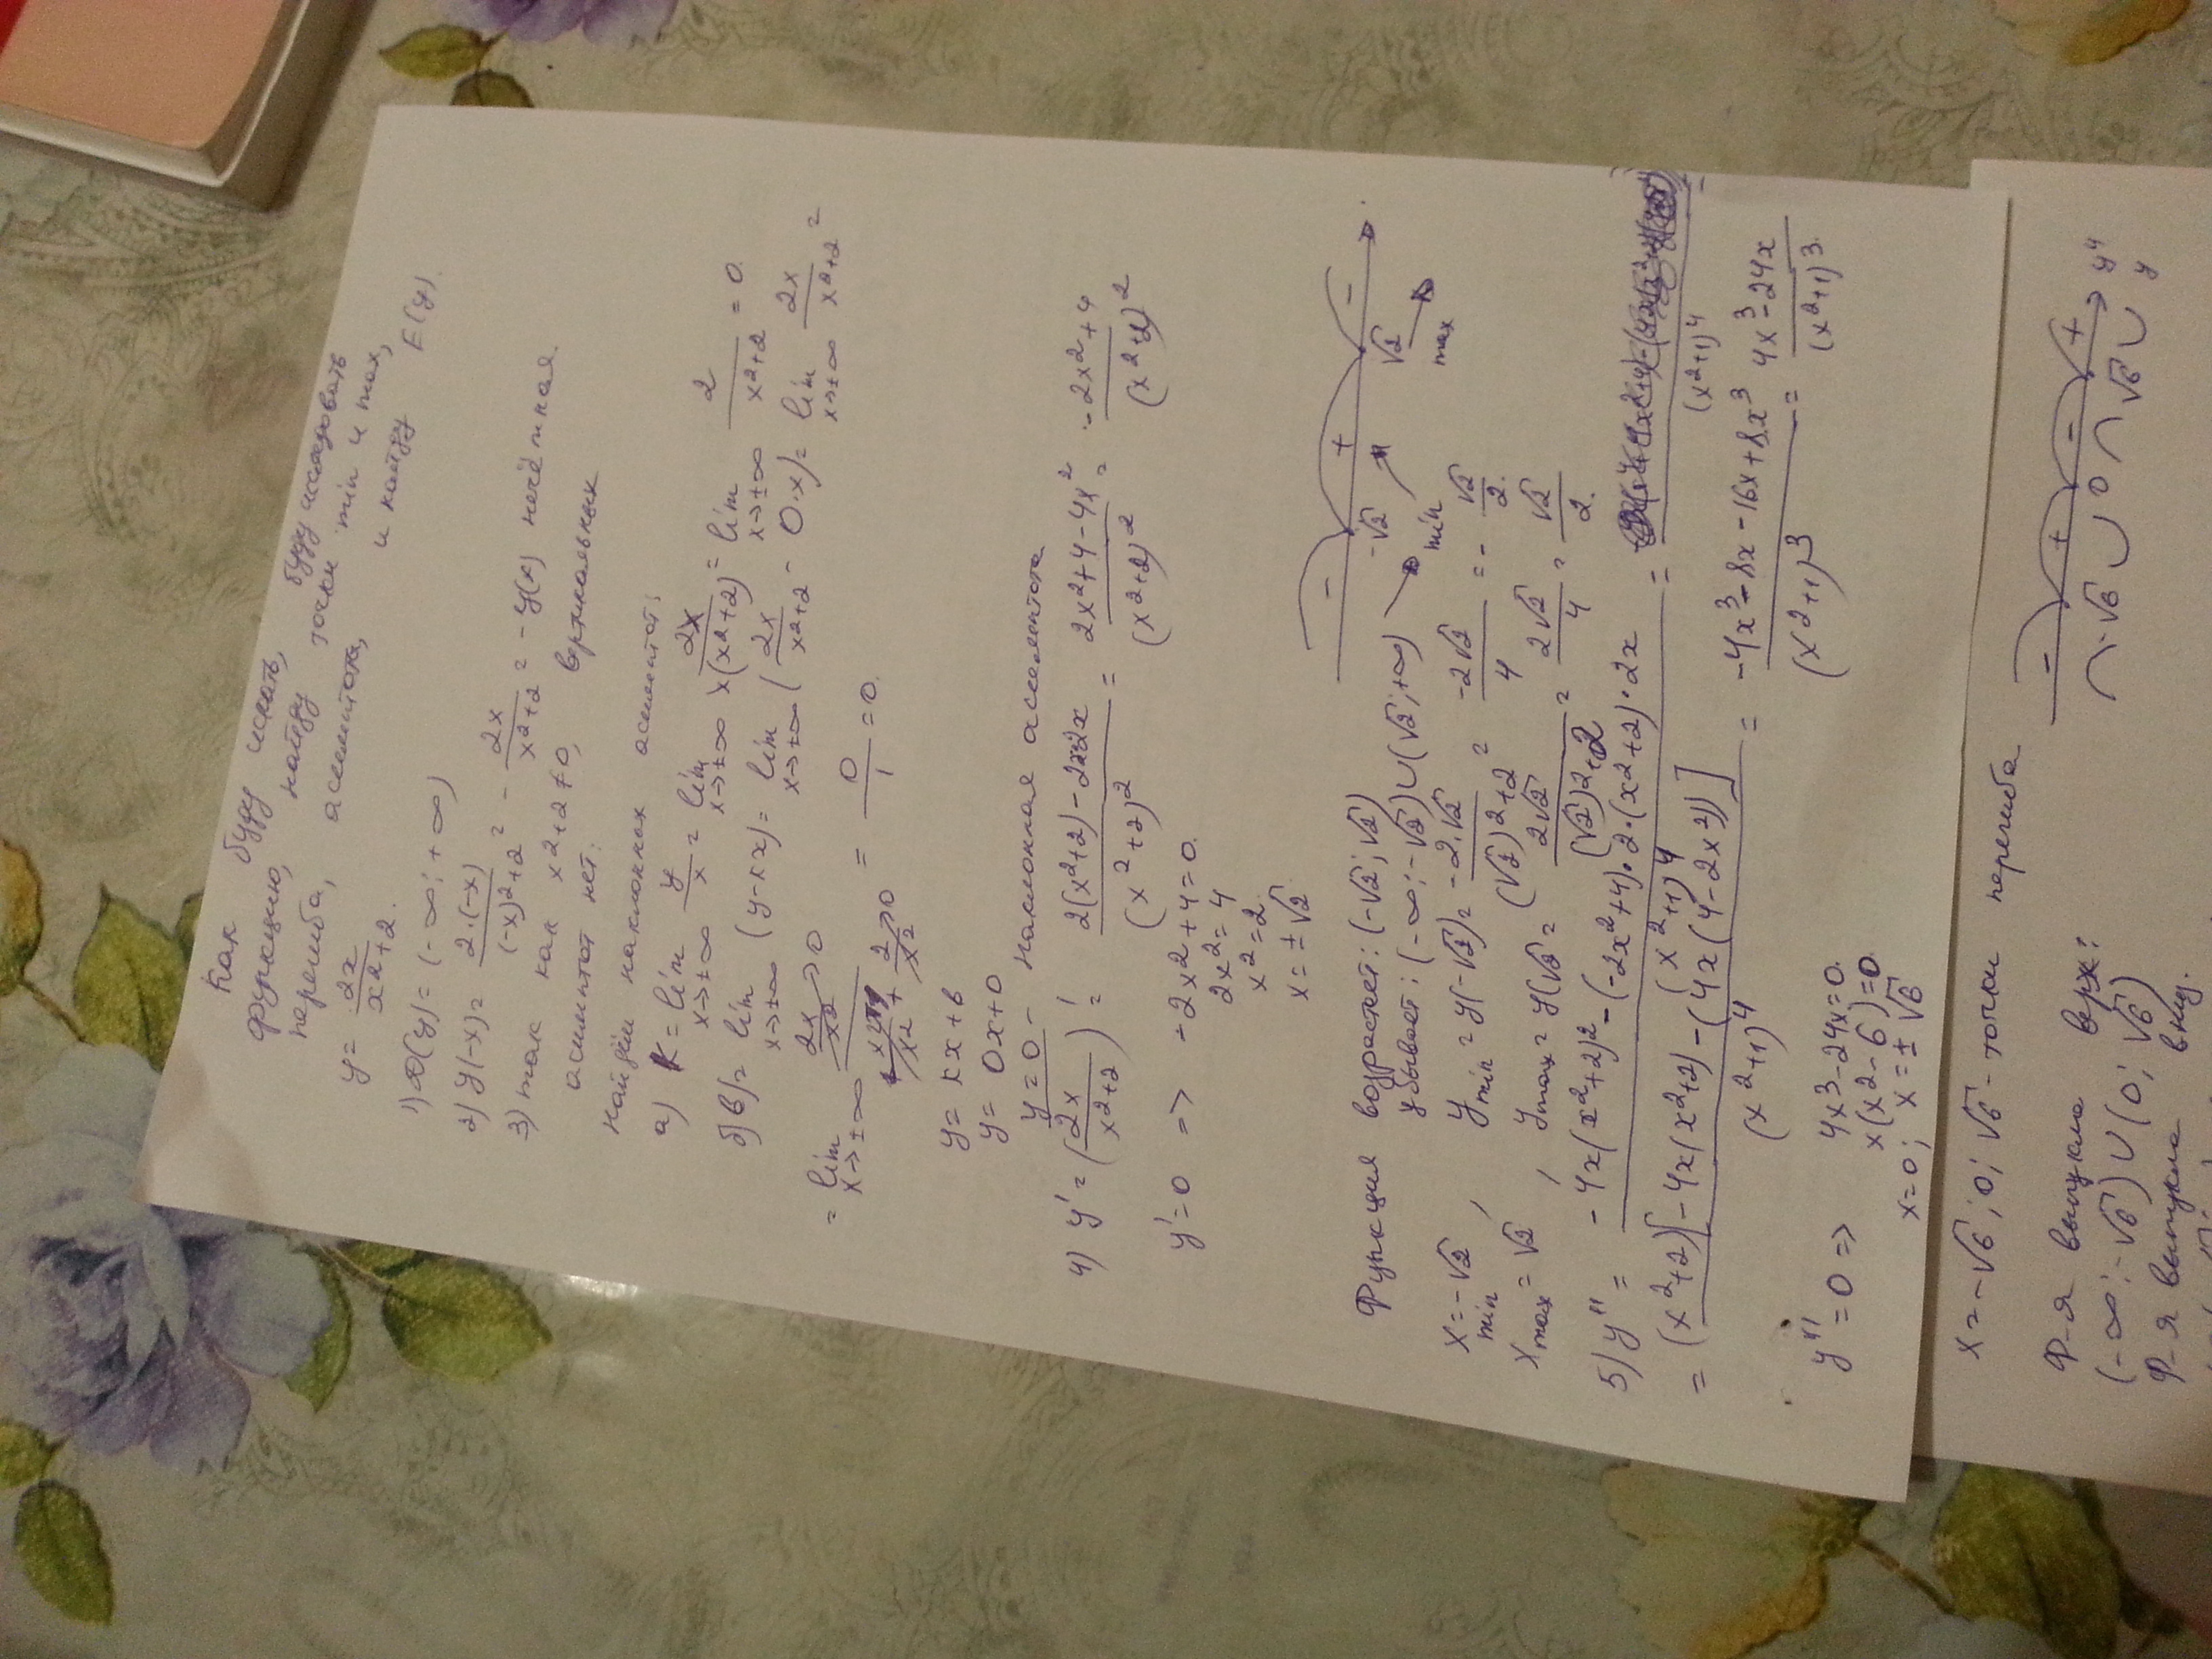 Как буду искать, буду исследовать
функцию, найду точки min и max,
перегиба, асимптота, и найду E(y).
y = 2x/(x²+2).
1) D(y) = (-∞; +∞)
2) y(-x) = 2·(-x)/((-x)²+2) = - 2x/(x²+2) = -y(x) нечётная.
3) так как x²+2≠0, вертикальных
асимптот нет.
Найдём наклонных асимптот:
a) k = lim x→±∞ y/x = lim x→±∞ 2x/(x(x²+2)) = lim x→±∞ 2/(x²+2) = 0.
б) b = lim x→±∞ (y-kx) = lim x→±∞ (2x/(x²+2) - 0·x) = lim x→±∞ 2x/(x²+2) =
= lim x→±∞ = 0/1 = 0.
y = kx + b
y = 0x + 0
y = 0 - наклонная ассимптота
4) y' = (2x/(x²+2))' = (2(x²+2) - 2x·2x)/(x²+2)² = (2x²+4-4x²)/(x²+2)² = (-2x²+4)/(x²+2)²
y'=0 => -2x²+4=0.
2x²=4
x²=2.
x=±√2.
- + -
-√2 √2
min max
Функция возрастет: (-√2; √2)
убывает: (-∞; -√2)∪(√2; +∞)
x min = -√2, y min = y(-√2) = -2·√2/((√2)²+2) = -2√2/4 = - √2/2.
x max = √2, y max = y(√2) = 2√2/((√2)²+2) = 2√2/4 = √2/2.
5) y'' = (-4x(x²+2)² - (-2x²+4)·2·(x²+2)·2x)/(x²+1)⁴ = /(x²+1)⁴
= (x²+2)[-4x(x²+2) - (4x(4-2x²))]/(x²+1)⁴ = (-4x³-8x-16x+8x³)/(x²+1)³ = (4x³-24x)/(x²+1)³.
y''=0 => 4x³-24x=0.
x(x²-6)=0.
x=0; x=±√6
x = -√6; 0; √6 - точки перегиба
- + - + y''
-√6 0 √6 y
Ф-я выпукла верх:
(-∞; -√6)∪(0; √6)
Ф-я выпукла вниз.